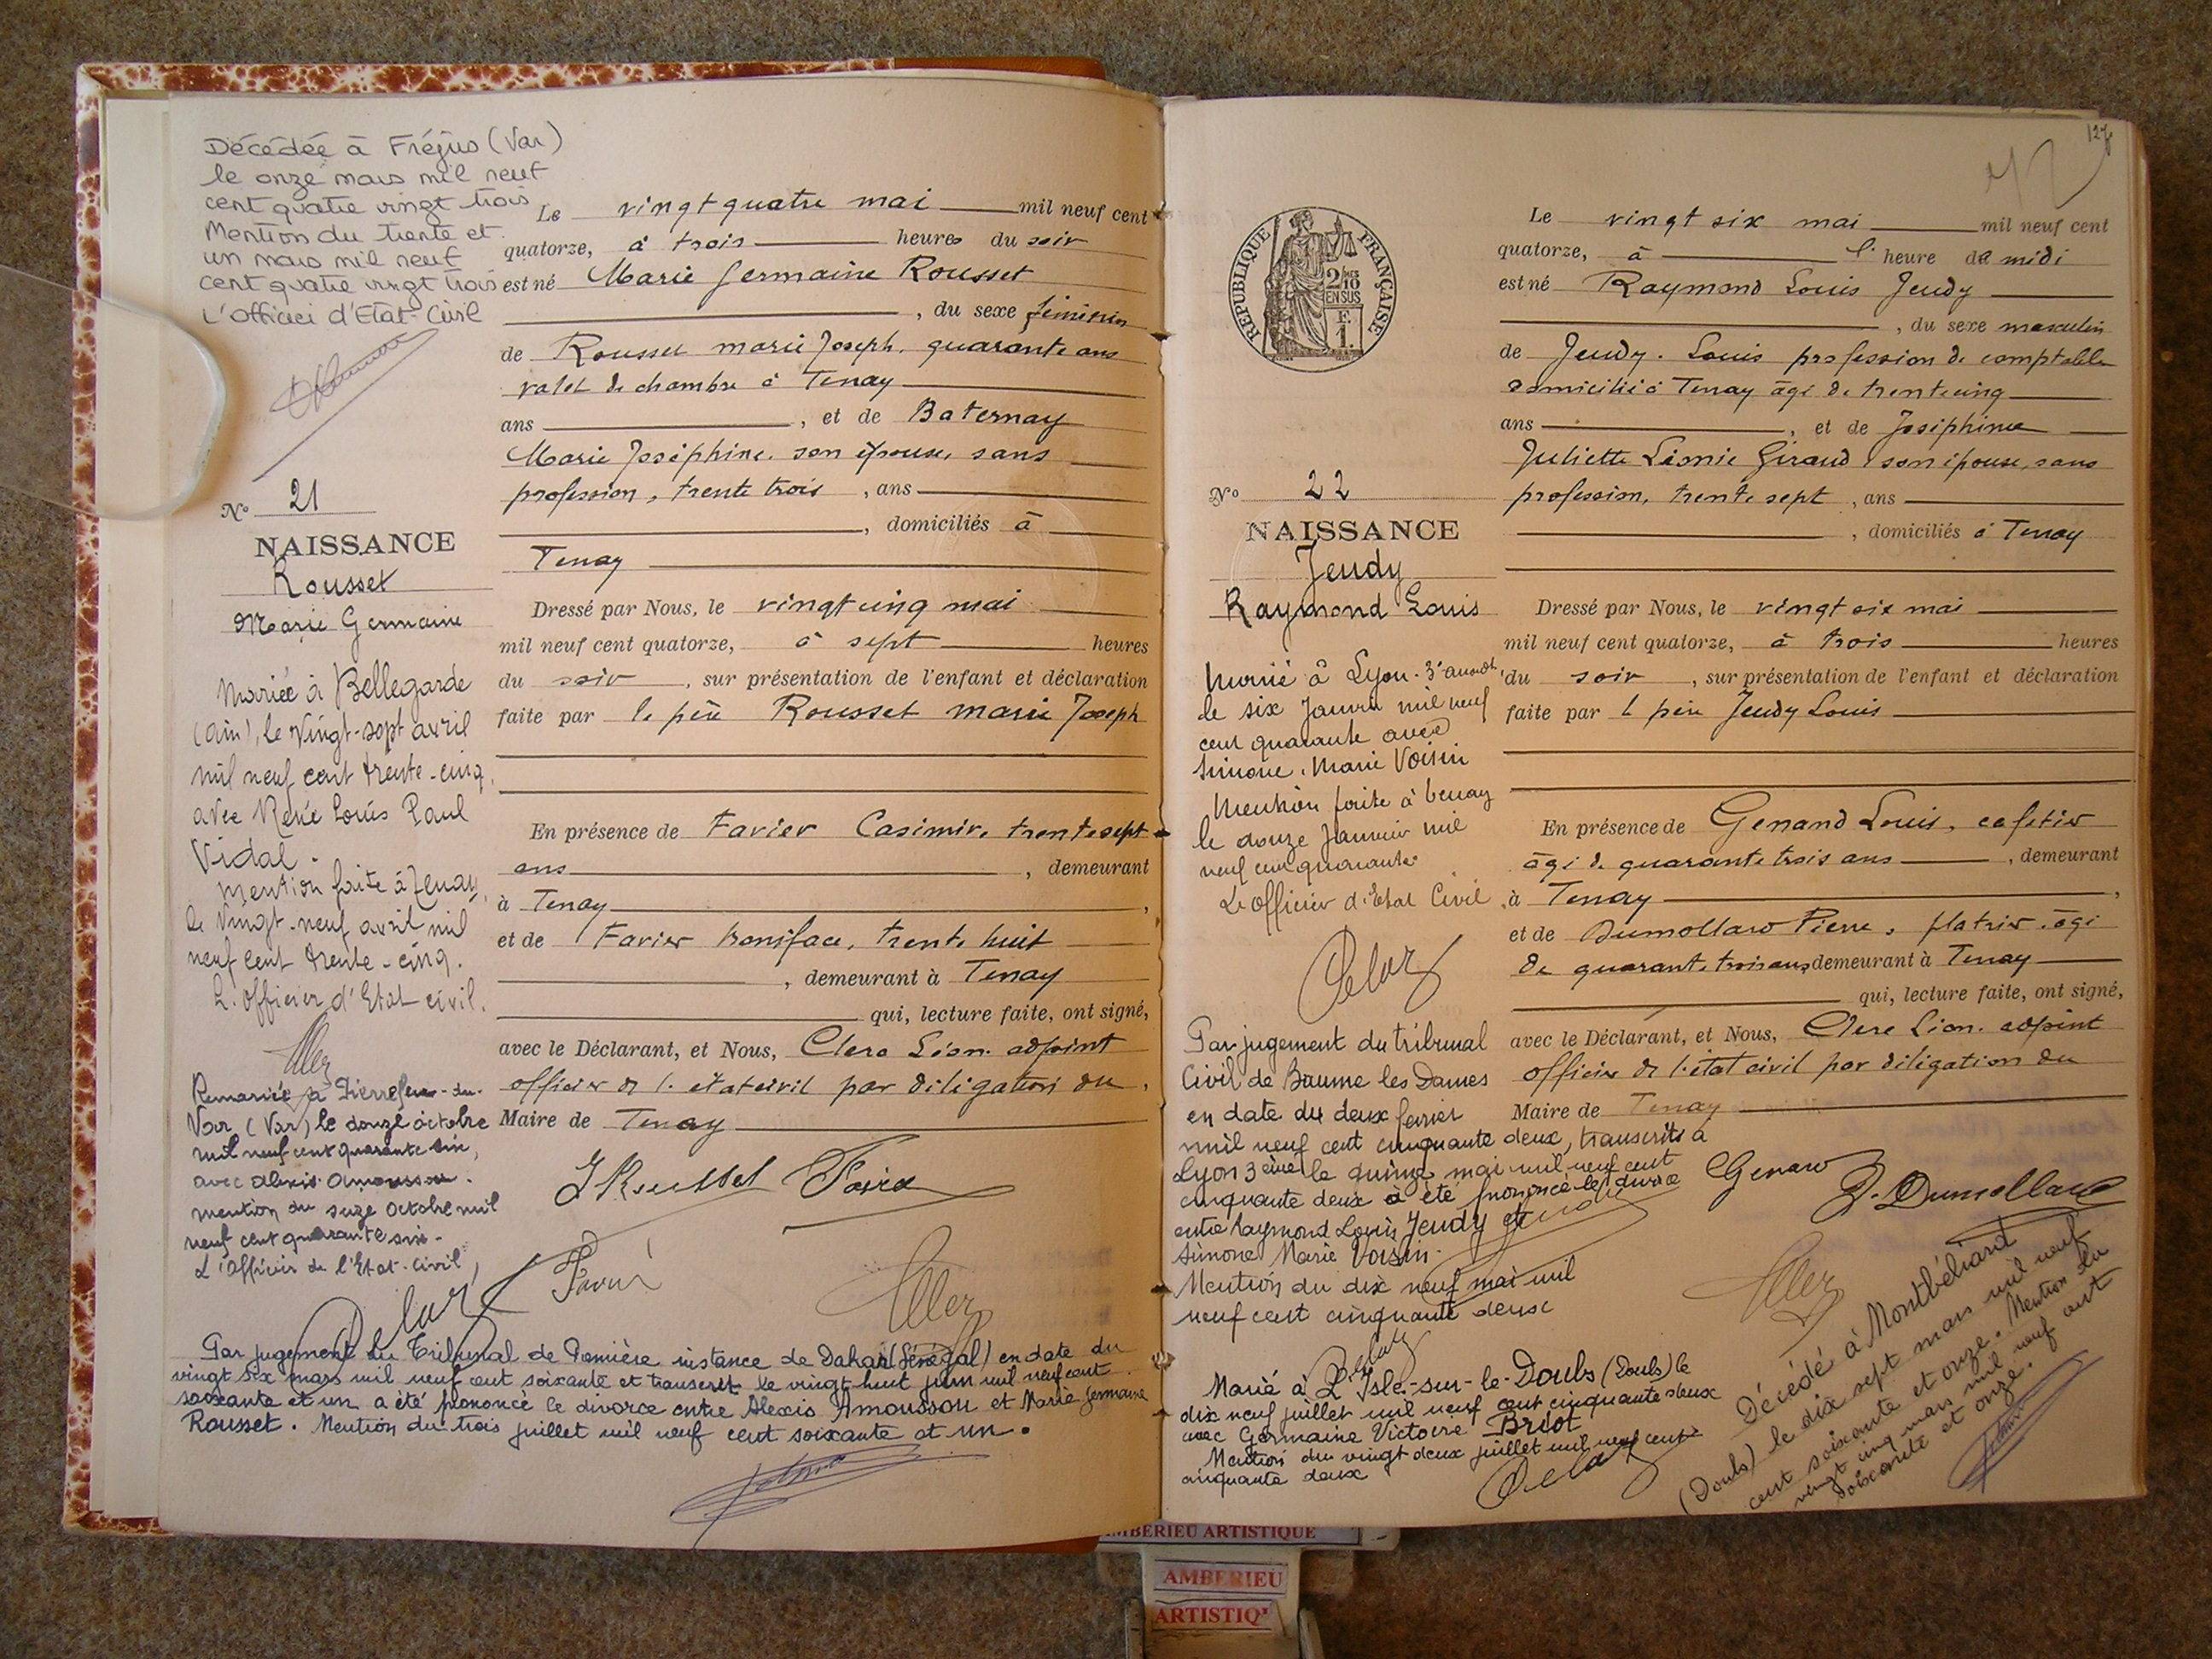 Décédée à Fréjus (Var)
le onze mars mil neuf
cent quatre vingt trois
Mention du trente et
un mars mil neuf
cent quatre vingt trois
L'Officier d'Etat-Civil
N° 21
NAISSANCE
Rousset
Marie Germaine
Mariée à Bellegarde
(Ain), le vingt-sept avril
mil neuf cent trente-cinq,
avec René Louis Paul
Vidal.
Mention faite à Tenay,
le vingt-neuf avril mil
neuf cent trente-cinq.
L'officier d'Etat civil.
Remariée à Pierrefeu-du-
Var (Var) le douze octobre
mil neuf cent quarante six,
avec Alexis Amoussou.
mention du seize octobre mil
neuf cent quarante six.
L'officier de l'Etat-civil,
Delaz
Le vingt quatre mai mil neuf cent
quatorze, à trois heures du soir
est né Marie Germaine Rousset
, du sexe féminin
de Rousset marie Joseph, quarante ans
valet de chambre à Tenay
ans , et de Baternay
Marie Joséphine son épouse, sans
profession, trente trois , ans
, domiciliés à
Tenay
Dressé par Nous, le vingt cinq mai
mil neuf cent quatorze, à sept heures
du soir , sur présentation de l'enfant et déclaration
faite par le père Rousset marie Joseph
En présence de Favier Casimir, trente sept
ans , demeurant
à Tenay ,
et de Favier Boniface, trente huit
, demeurant à Tenay
qui, lecture faite, ont signé,
avec le Déclarant, et Nous, Clerc Léon. adjoint
officier de l'état civil par délégation du
Maire de Tenay
Par jugement du Tribunal de Première instance de Dakar (Sénégal) en date du
vingt six mars mil neuf cent soixante et transcrit le vingt huit juin mil neuf cent
soixante et un a été prononcé le divorce entre Alexis Amoussou et Marie Germaine
Rousset. Mention du trois juillet mil neuf cent soixante et un.
127
REPUBLIQUE FRANÇAISE
2/10 EN SUS
F. 1.
N° 22
NAISSANCE
Jeudy
Raymond Louis
Marié à Lyon. 3e arrondt
le six Janvier mil neuf
cent quarante avec
Simone Marie Voisin
Mention faite à Tenay
le douze Janvier mil
neuf cent quarante
L'officier d'Etat Civil
Delaz
Par jugement du tribunal
Civil de Baume les Dames
en date du deux février
mil neuf cent cinquante deux, transcrit à
Lyon 3eme le quinze mai mil neuf cent
cinquante deux a été prononcé le divorce
entre Raymond Louis Jeudy et
Simone Marie Voisin.
Mention du dix neuf mai mil
neuf cent cinquante deux
Delaz
Marié à L'Isle-sur-le-Doubs (Doubs) le
dix neuf juillet mil neuf cent cinquante deux
avec Germaine Victoire Briot
Mention du vingt deux juillet mil neuf cent
cinquante deux
Delaz
Le vingt six mai mil neuf cent
quatorze, à l'heure de midi
est né Raymond Louis Jeudy
, du sexe masculin
de Jeudy. Louis profession de comptable
domicilié à Tenay âgé de trente cinq
ans , et de Joséphine
Juliette Léonie Giraud son épouse, sans
profession, trente sept , ans
, domiciliés à Tenay
Dressé par Nous, le vingt six mai
mil neuf cent quatorze, à trois heures
du soir , sur présentation de l'enfant et déclaration
faite par l père Jeudy Louis
En présence de Genand Louis, cafetier
âgé de quarante trois ans , demeurant
à Tenay ,
et de Dumollard Pierre, platrier. âgé
de quarante trois ans, demeurant à Tenay
qui, lecture faite, ont signé,
avec le Déclarant, et Nous, Clerc Léon. adjoint
officier de l'état civil par délégation du
Maire de Tenay
Genand
P. Dumollard
Décédé à Montbéliard
(Doubs) le dix sept mars mil neuf
cent soixante et onze. Mention du
vingt cinq mars mil neuf cent
soixante et onze.
AMBERIEU ARTISTIQUE
AMBERIEU
ARTISTIQ